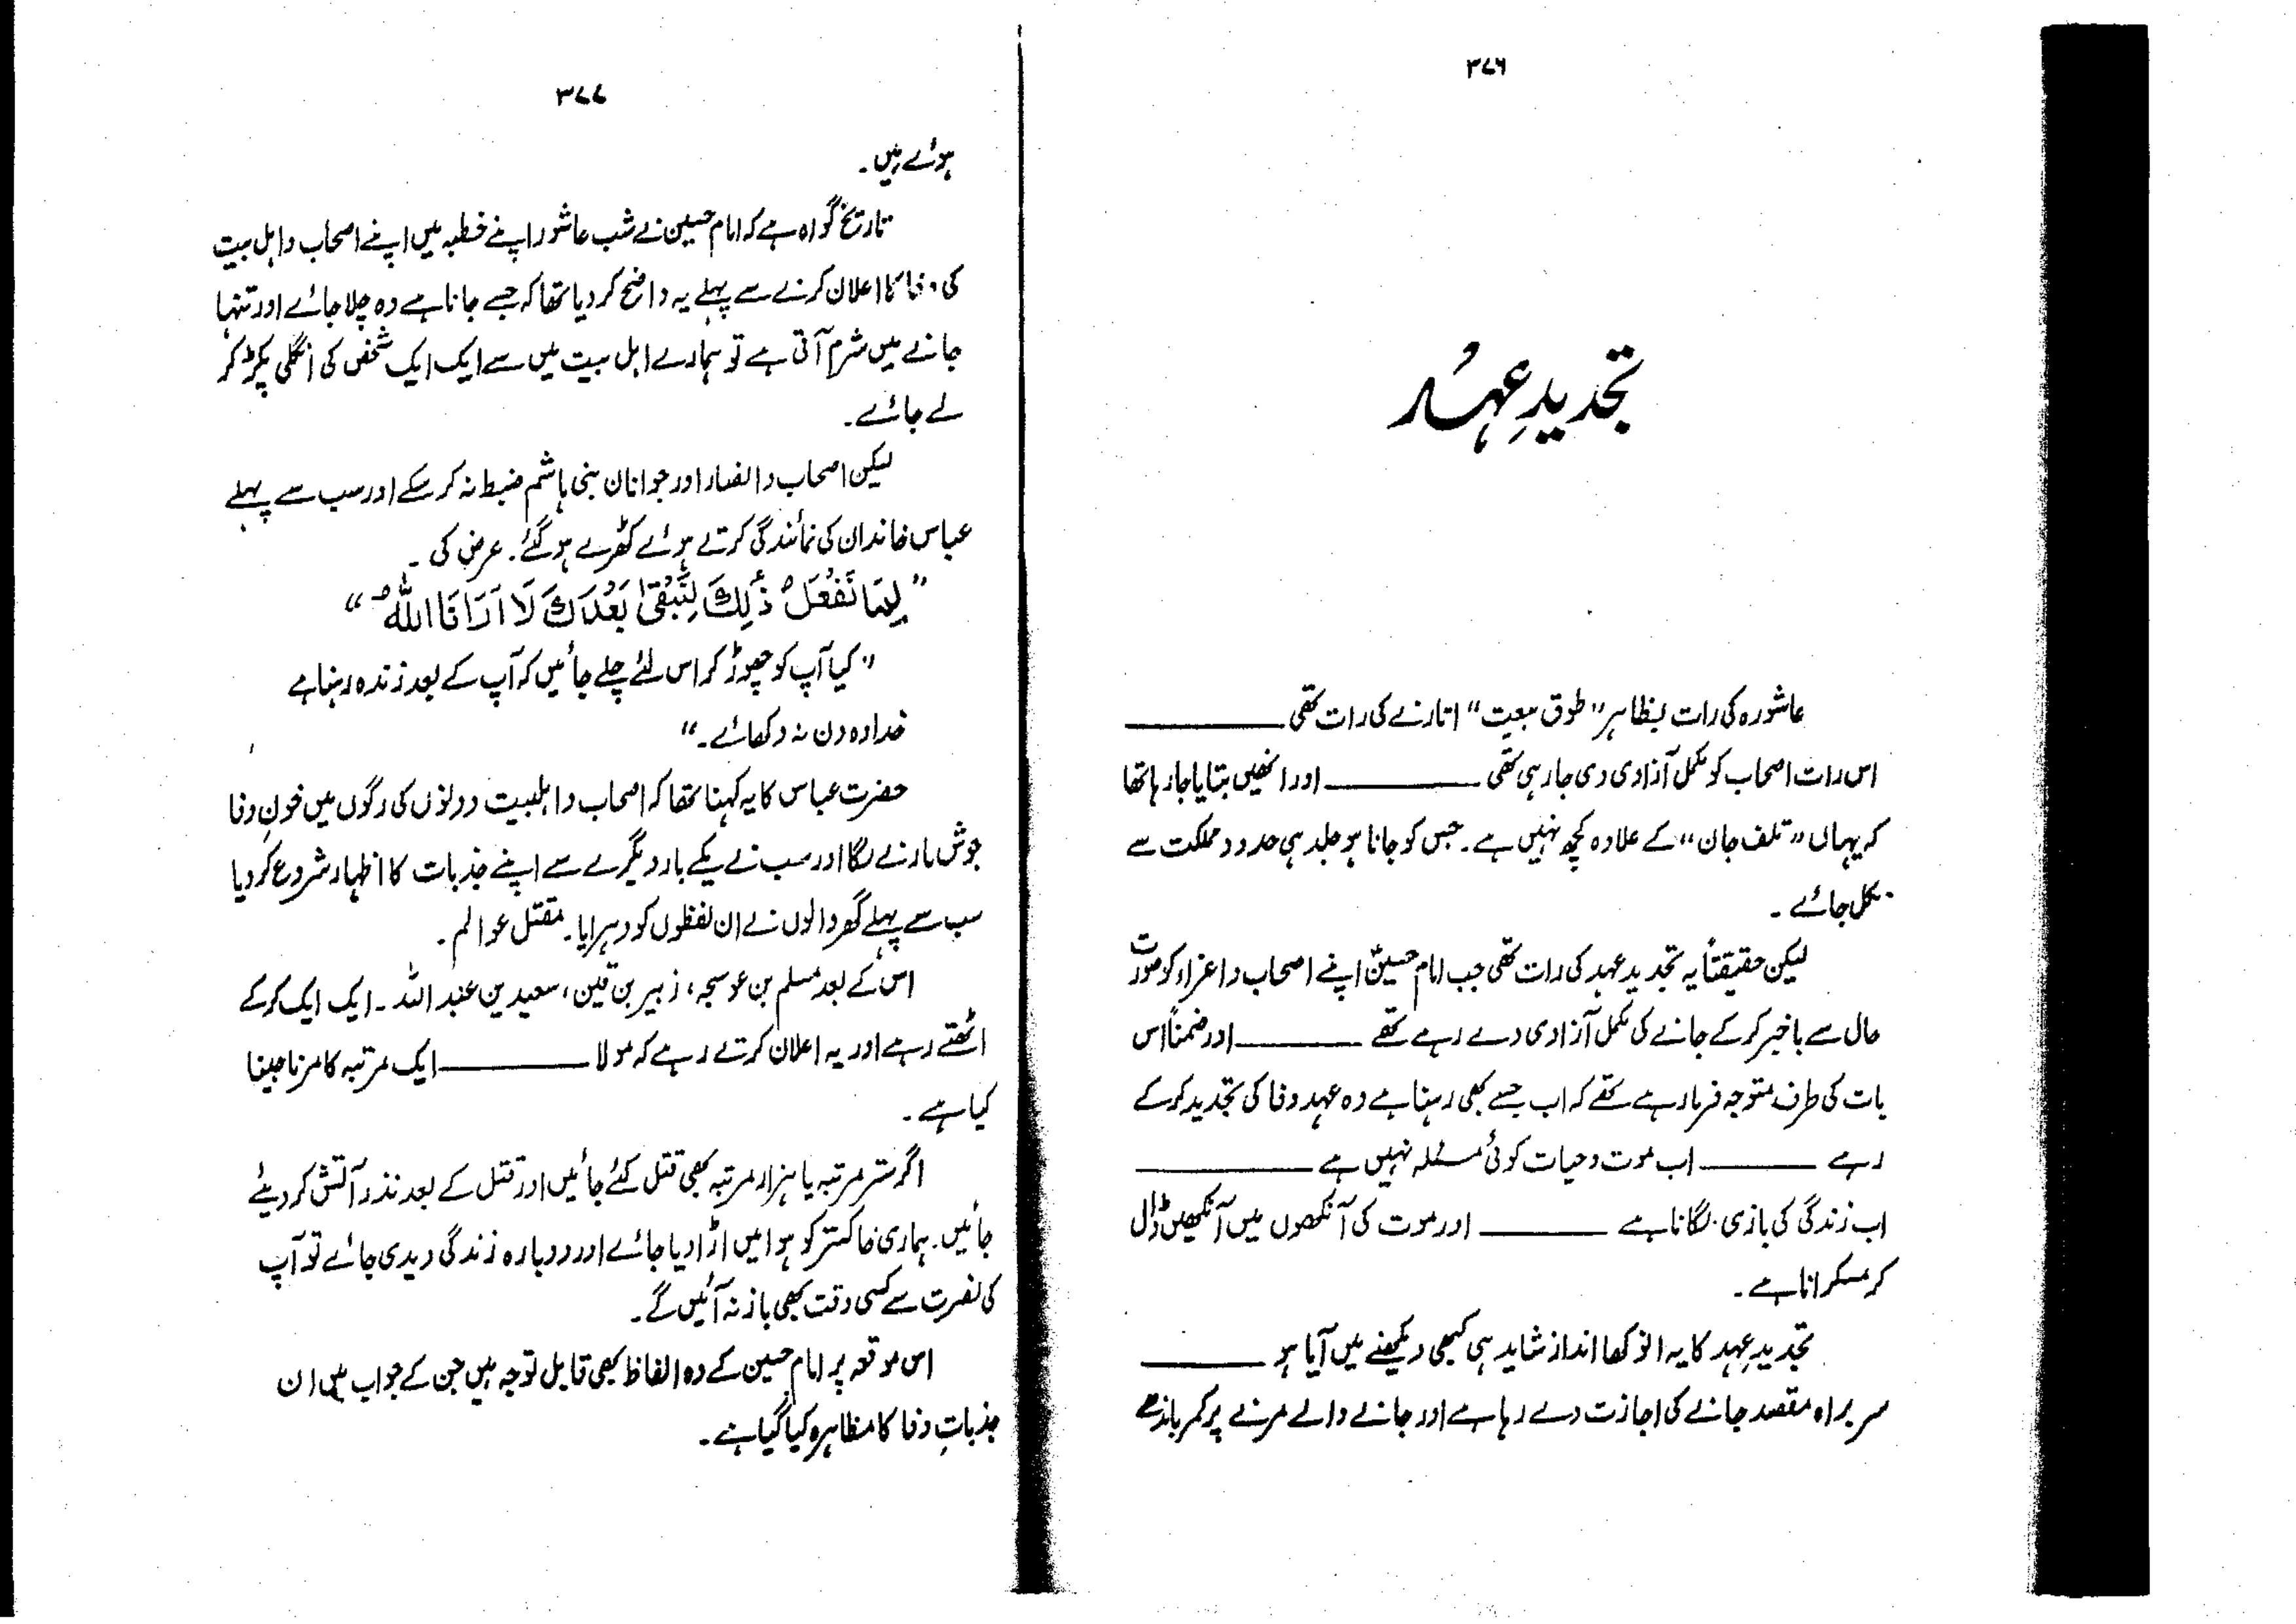 ۳۷۶
تجدیدِ عہد
عاشورہ کی رات بظاہر "طوق بیعت" اتارنے کی رات تھی ــــــــــ
اس رات اصحاب کو مکمل آزادی دی جا رہی تھی ــــــــــ اور انھیں بتایا جا رہا تھا
کہ یہاں "تلف جان" کے علاوہ کچھ نہیں ہے۔ جس کو جانا ہو جلد ہی حدود مملکت سے
نکل جائے۔
لیکن حقیقتاً یہ تجدید عہد کی رات تھی جب امام حسینؑ اپنے اصحاب و اعزاء کو صورت
حال سے باخبر کر کے جانے کی مکمل آزادی دے رہے تھے ــــــــــ اور ضمناً اس
بات کی طرف متوجہ فرما رہے تھے کہ اب جسے بھی رہنا ہے وہ عہد وفا کی تجدید کر کے
رہے ــــــــــ اب موت و حیات کوئی مسئلہ نہیں ہے ــــــــــ
اب زندگی کی بازی لگانا ہے ــــــــــ اور موت کی آنکھوں میں آنکھیں ڈال
کر مسکرانا ہے۔
تجدیدِ عہد کا یہ انوکھا انداز شاید ہی کبھی دیکھنے میں آیا ہو ــــــــــ
سربراہ مقصد جانے کی اجازت دے رہا ہے اور جانے والے مرنے پر کمر باندھے
۳۷۷
ہوئے ہیں۔
تاریخ گواہ ہے کہ امام حسین نے شب عاشور اپنے خطبہ میں اپنے اصحاب و اہل بیت
کی وفا کا اعلان کرنے سے پہلے یہ واضح کر دیا تھا کہ جسے جانا ہے وہ چلا جائے اور تنہا
جانے میں شرم آتی ہے تو ہمارے اہل بیت میں سے ایک ایک شخص کی انگلی پکڑ کر
لے جائے۔
لیکن اصحاب و انصار اور جوانان بنی ہاشم ضبط نہ کر سکے اور سب سے پہلے
عباس خاندان کی نمائندگی کرتے ہوئے کھڑے ہو گئے۔ عرض کی۔
"لِمَا نَفْعَلُ ذٰلِكَ لِنَبْقٰى بَعْدَكَ لَا اَرَانَا اللّٰهُ"
"کیا آپ کو چھوڑ کر اس لئے چلے جائیں کہ آپ کے بعد زندہ رہنا ہے
خدا وہ دن نہ دکھائے۔"
حضرت عباس کا یہ کہنا تھا کہ اصحاب و اہلبیت دونوں کی رگوں میں خونِ وفا
جوش مارنے لگا اور سب نے یکے بار دیگرے سے اپنے جذبات کا اظہار شروع کر دیا
سب سے پہلے گھر والوں نے ان لفظوں کو دہرایا۔ مقتل عوالم۔
اس کے بعد مسلم بن عوسجہ، زہیر بن قین، سعید بن عبد اللہ۔ ایک ایک کر کے
اٹھتے رہے اور یہ اعلان کرتے رہے کہ مولا ــــــــــ ایک مرتبہ کا مرنا جینا
کیا ہے۔
اگر ستر مرتبہ یا ہزار مرتبہ بھی قتل کئے جائیں اور قتل کے بعد نذر آتش کر دیئے
جائیں۔ ہماری خاکستر کو ہوا میں اڑا دیا جائے اور دوبارہ زندگی دیدی جائے تو آپ
کی نصرت سے کسی وقت بھی باز نہ آئیں گے۔
اس موقعہ پر امام حسین کے وہ الفاظ بھی قابل توجہ ہیں جن کے جواب میں ان
جذباتِ وفا کا مظاہرہ کیا گیا ہے۔